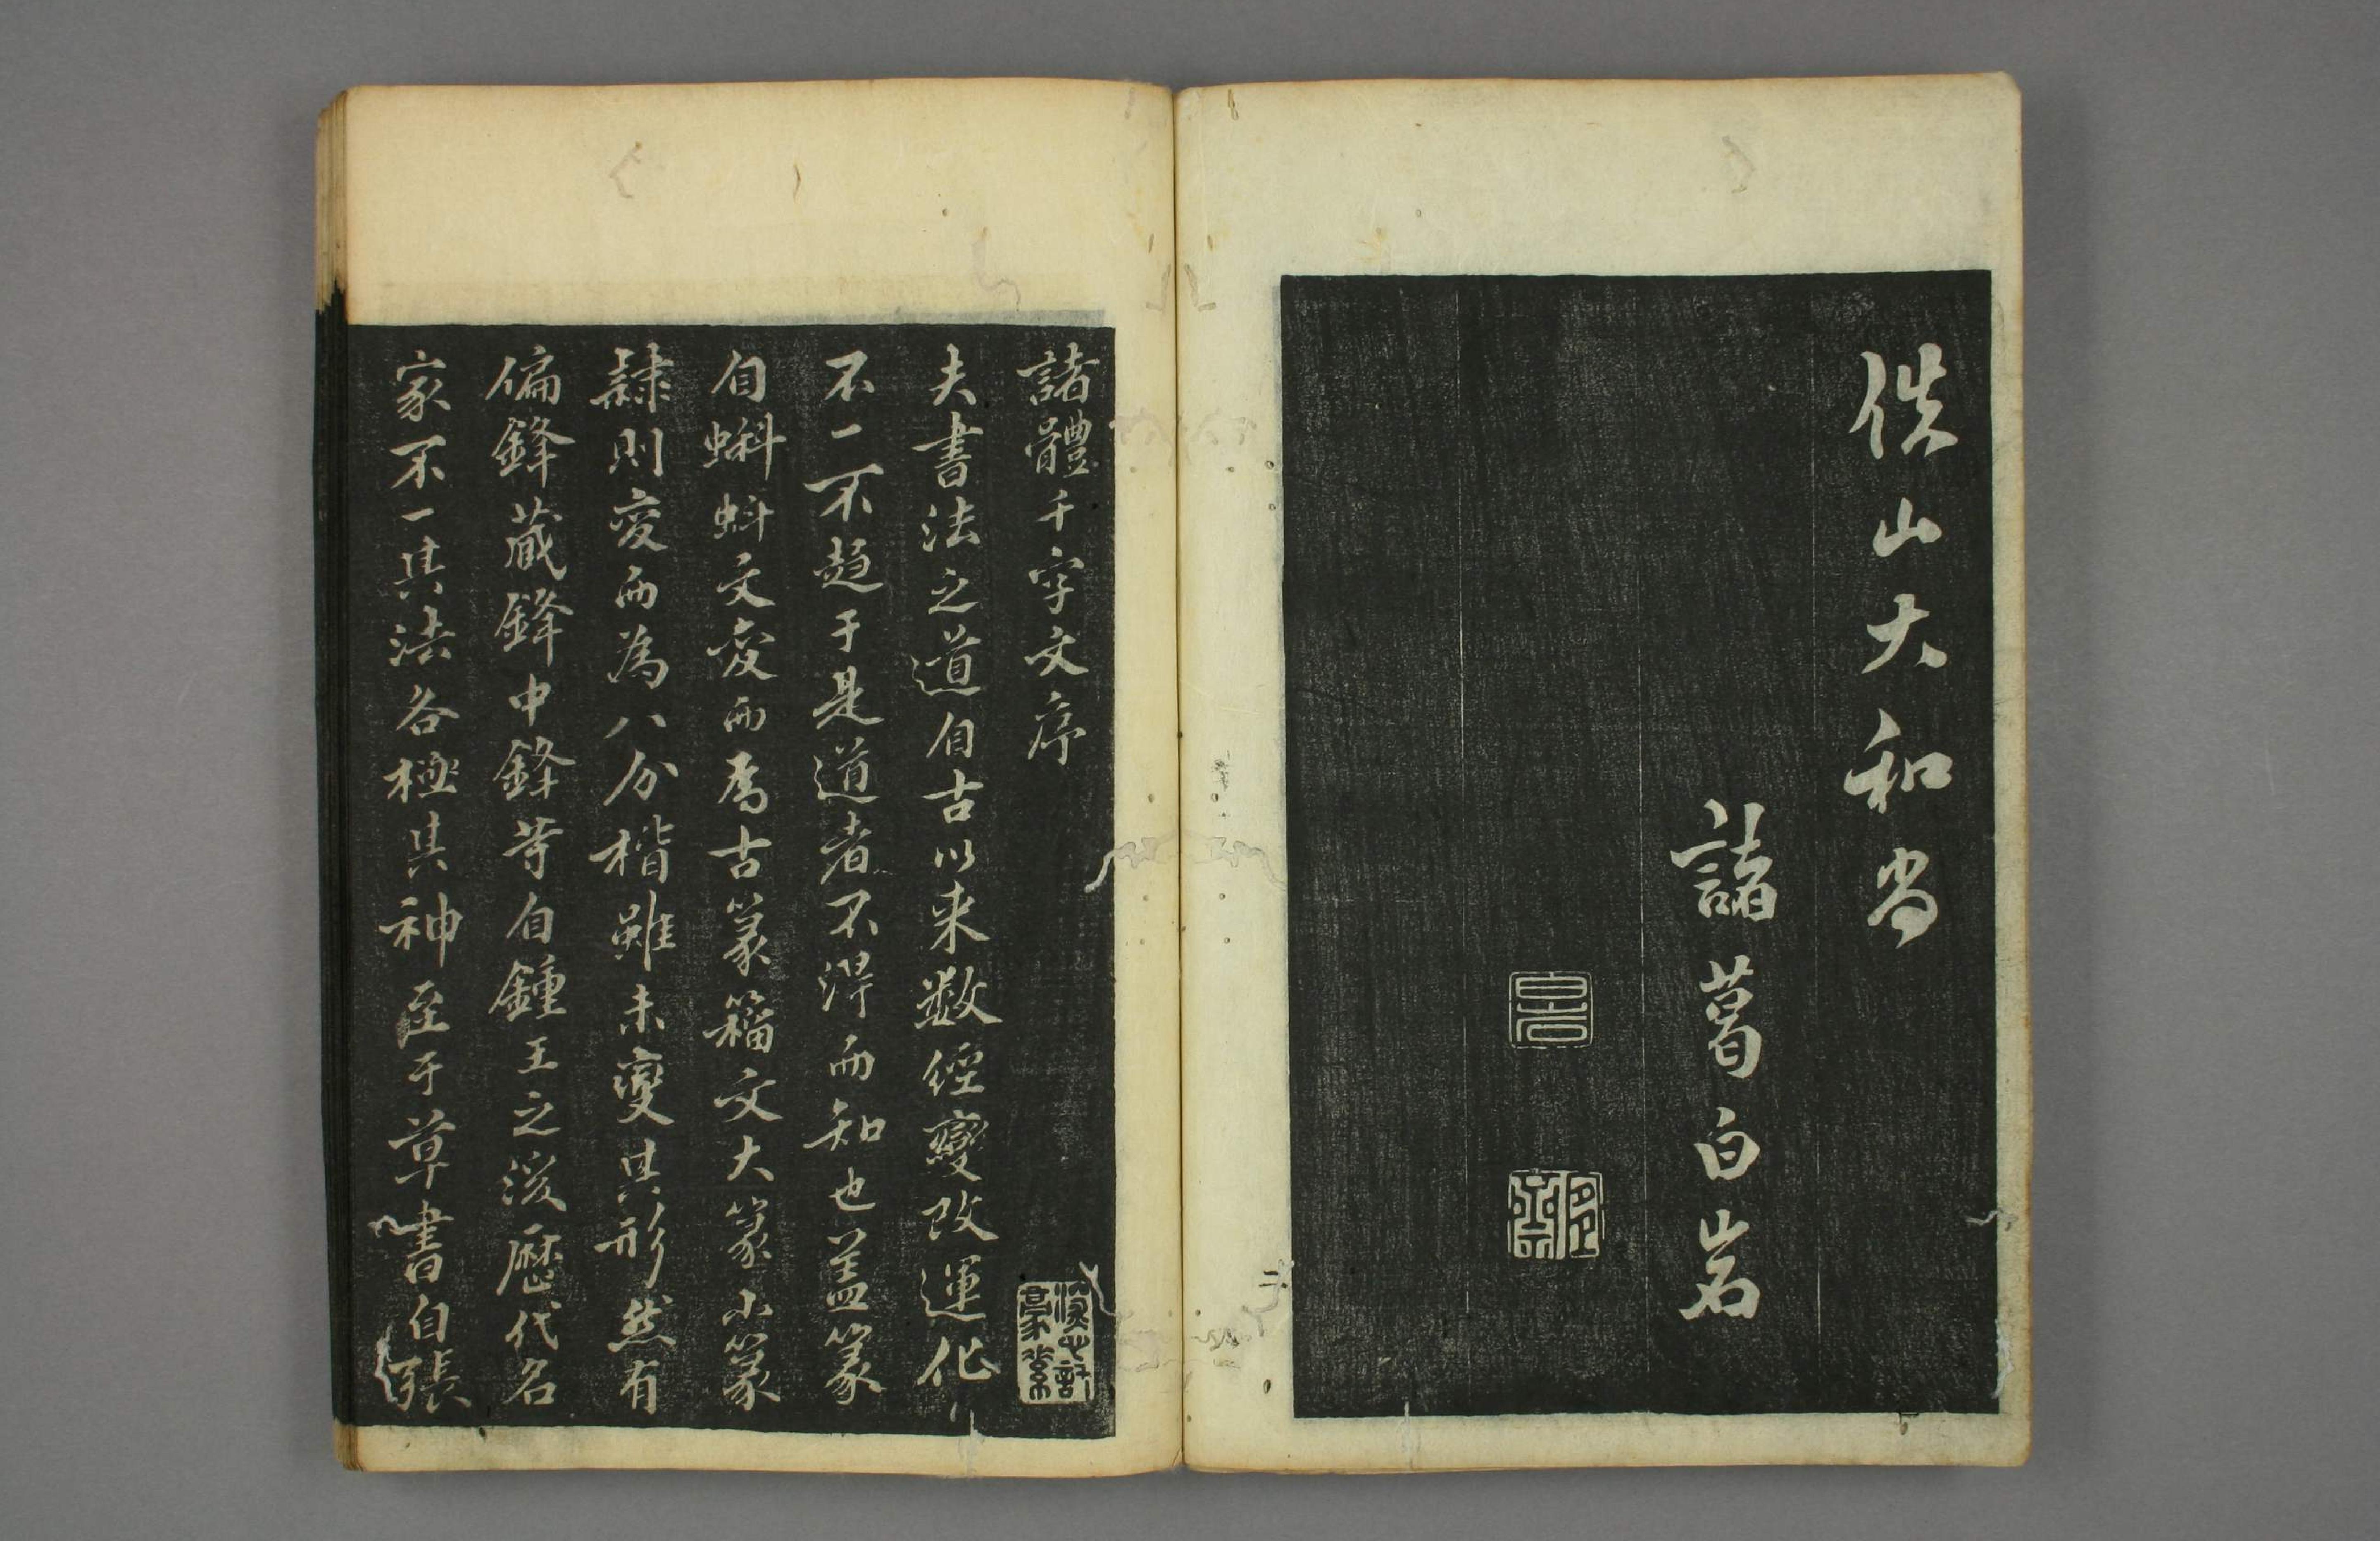 佚山大和尚
諸葛白岩
二
諸體千字文序
夫書法之道自古以来数經變改運化
不一不趋于是道者不得而知也盖篆
自蝌蚪文变而為古篆籀文大篆小篆
隷則变而為八分楷雖未變其形然有
偏鋒蔵鋒中鋒等自鍾王之後歴代名
家不一其法各極其神至于草書自張